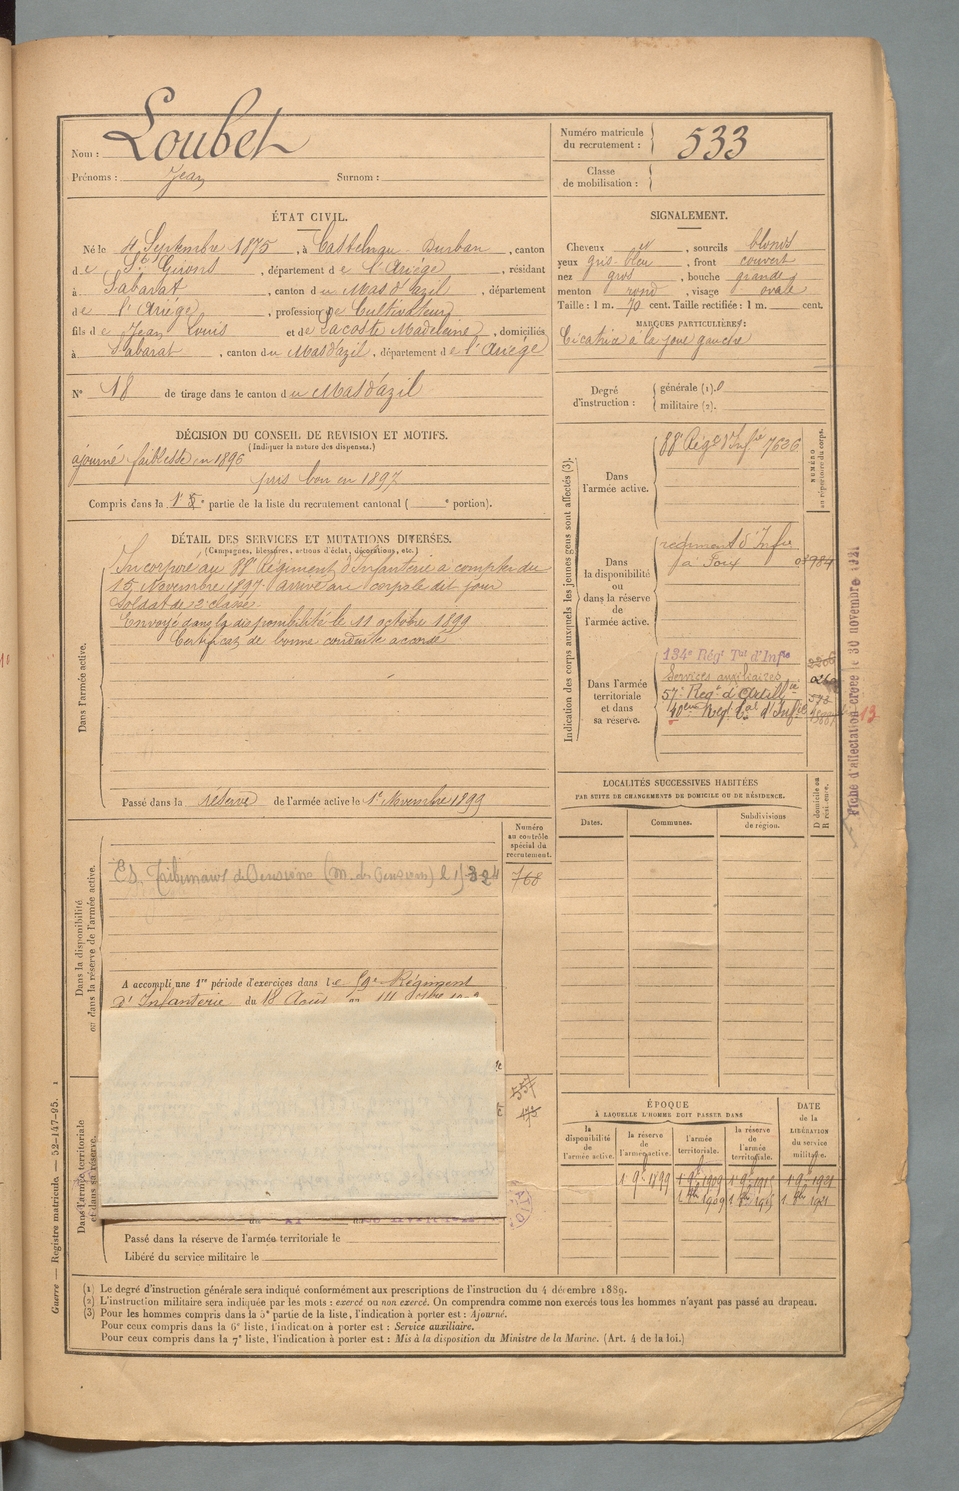 Nom : Loubet
Prénoms : Jean Surnom :
Numéro matricule du recrutement : 533
Classe de mobilisation :
ÉTAT CIVIL.
Né le 4 Septembre 1875, à Castelnau-Durban, canton
de St Girons, département de l'Ariége, résidant
à Sabarat, canton du Mas d'azil, département
de l'Ariége, profession de Cultivateur
fils de Jean Louis et de Lacoste Madeleine, domiciliés
à Sabarat, canton du Mas d'azil, département de l'Ariége
N° 18 de tirage dans le canton du Mas d'azil
SIGNALEMENT.
Cheveux et, sourcils blonds
yeux gris-bleu, front couvert
nez gros, bouche grande
menton rond, visage ovale
Taille : 1 m. 70 cent. Taille rectifiée : 1 m. cent.
MARQUES PARTICULIÈRES :
Cicatrice à la joue gauche
Degré d'instruction : générale (1).
militaire (2).
DÉCISION DU CONSEIL DE REVISION ET MOTIFS.
(Indiquer la nature des dispenses.)
ajourné faiblesse en 1896
pris bon en 1897
Compris dans la 1e partie de la liste du recrutement cantonal ( e portion).
DÉTAIL DES SERVICES ET MUTATIONS DIVERSES.
(Campagnes, blessures, actions d'éclat, décorations, etc.)
Dans l'armée active.
Incorporé au 88e Régiment d'Infanterie à compter du
15 Novembre 1897 arrivé au corps le dit jour
Soldat de 2e classe
Envoyé dans la disponibilité le 11 octobre 1899
Certificat de bonne conduite accordé
Passé dans la réserve de l'armée active le 1er Novembre 1899
Indication des corps auxquels les jeunes gens sont affectés (3).
NUMÉRO
au répertoire du corps.
Dans l'armée active.
88e Régt d'Infie 7626
Dans la disponibilité ou dans la réserve de l'armée active.
régiment d'Infie
à Foix 0984
Dans l'armée territoriale et dans sa réserve.
134e Régt Tal d'Infie
Services auxiliaires
57e Regt d'Artillie
40eme Regt Tal d'Infie
13
Fiche d'affectation créée le 30 novembre 1921
LOCALITÉS SUCCESSIVES HABITÉES
PAR SUITE DE CHANGEMENTS DE DOMICILE OU DE RÉSIDENCE.
Dates. Communes. Subdivisions de région. D domicile ou R résidence.
Numéro au contrôle spécial du recrutement.
768
Dans la disponibilité ou dans la réserve de l'armée active.
A accompli une 1re période d'exercices dans le 59e Régiment
d'Infanterie du 18 Août
557
173
Dans l'armée territoriale et dans sa réserve.
Passé dans la réserve de l'armée territoriale le
Libéré du service militaire le
ÉPOQUE
À LAQUELLE L'HOMME DOIT PASSER DANS
DATE de la LIBÉRATION du service militaire.
la disponibilité de l'armée active. la réserve de l'armée active. l'armée territoriale. la réserve de l'armée territoriale.
1 9bre 1899 1 9bre 1909 1 9bre 1915 1 9bre 1921
1 8bre 1909 1 8bre 1915 1 8bre 1921
Guerre — Registre matricule. — 52-147-95.
(1) Le degré d'instruction générale sera indiqué conformément aux prescriptions de l'instruction du 4 décembre 1889.
(2) L'instruction militaire sera indiquée par les mots : exercé ou non exercé. On comprendra comme non exercés tous les hommes n'ayant pas passé au drapeau.
(3) Pour les hommes compris dans la 5e partie de la liste, l'indication à porter est : Ajourné.
Pour ceux compris dans la 6e liste, l'indication à porter est : Service auxiliaire.
Pour ceux compris dans la 7e liste, l'indication à porter est : Mis à la disposition du Ministre de la Marine. (Art. 4 de la loi.)